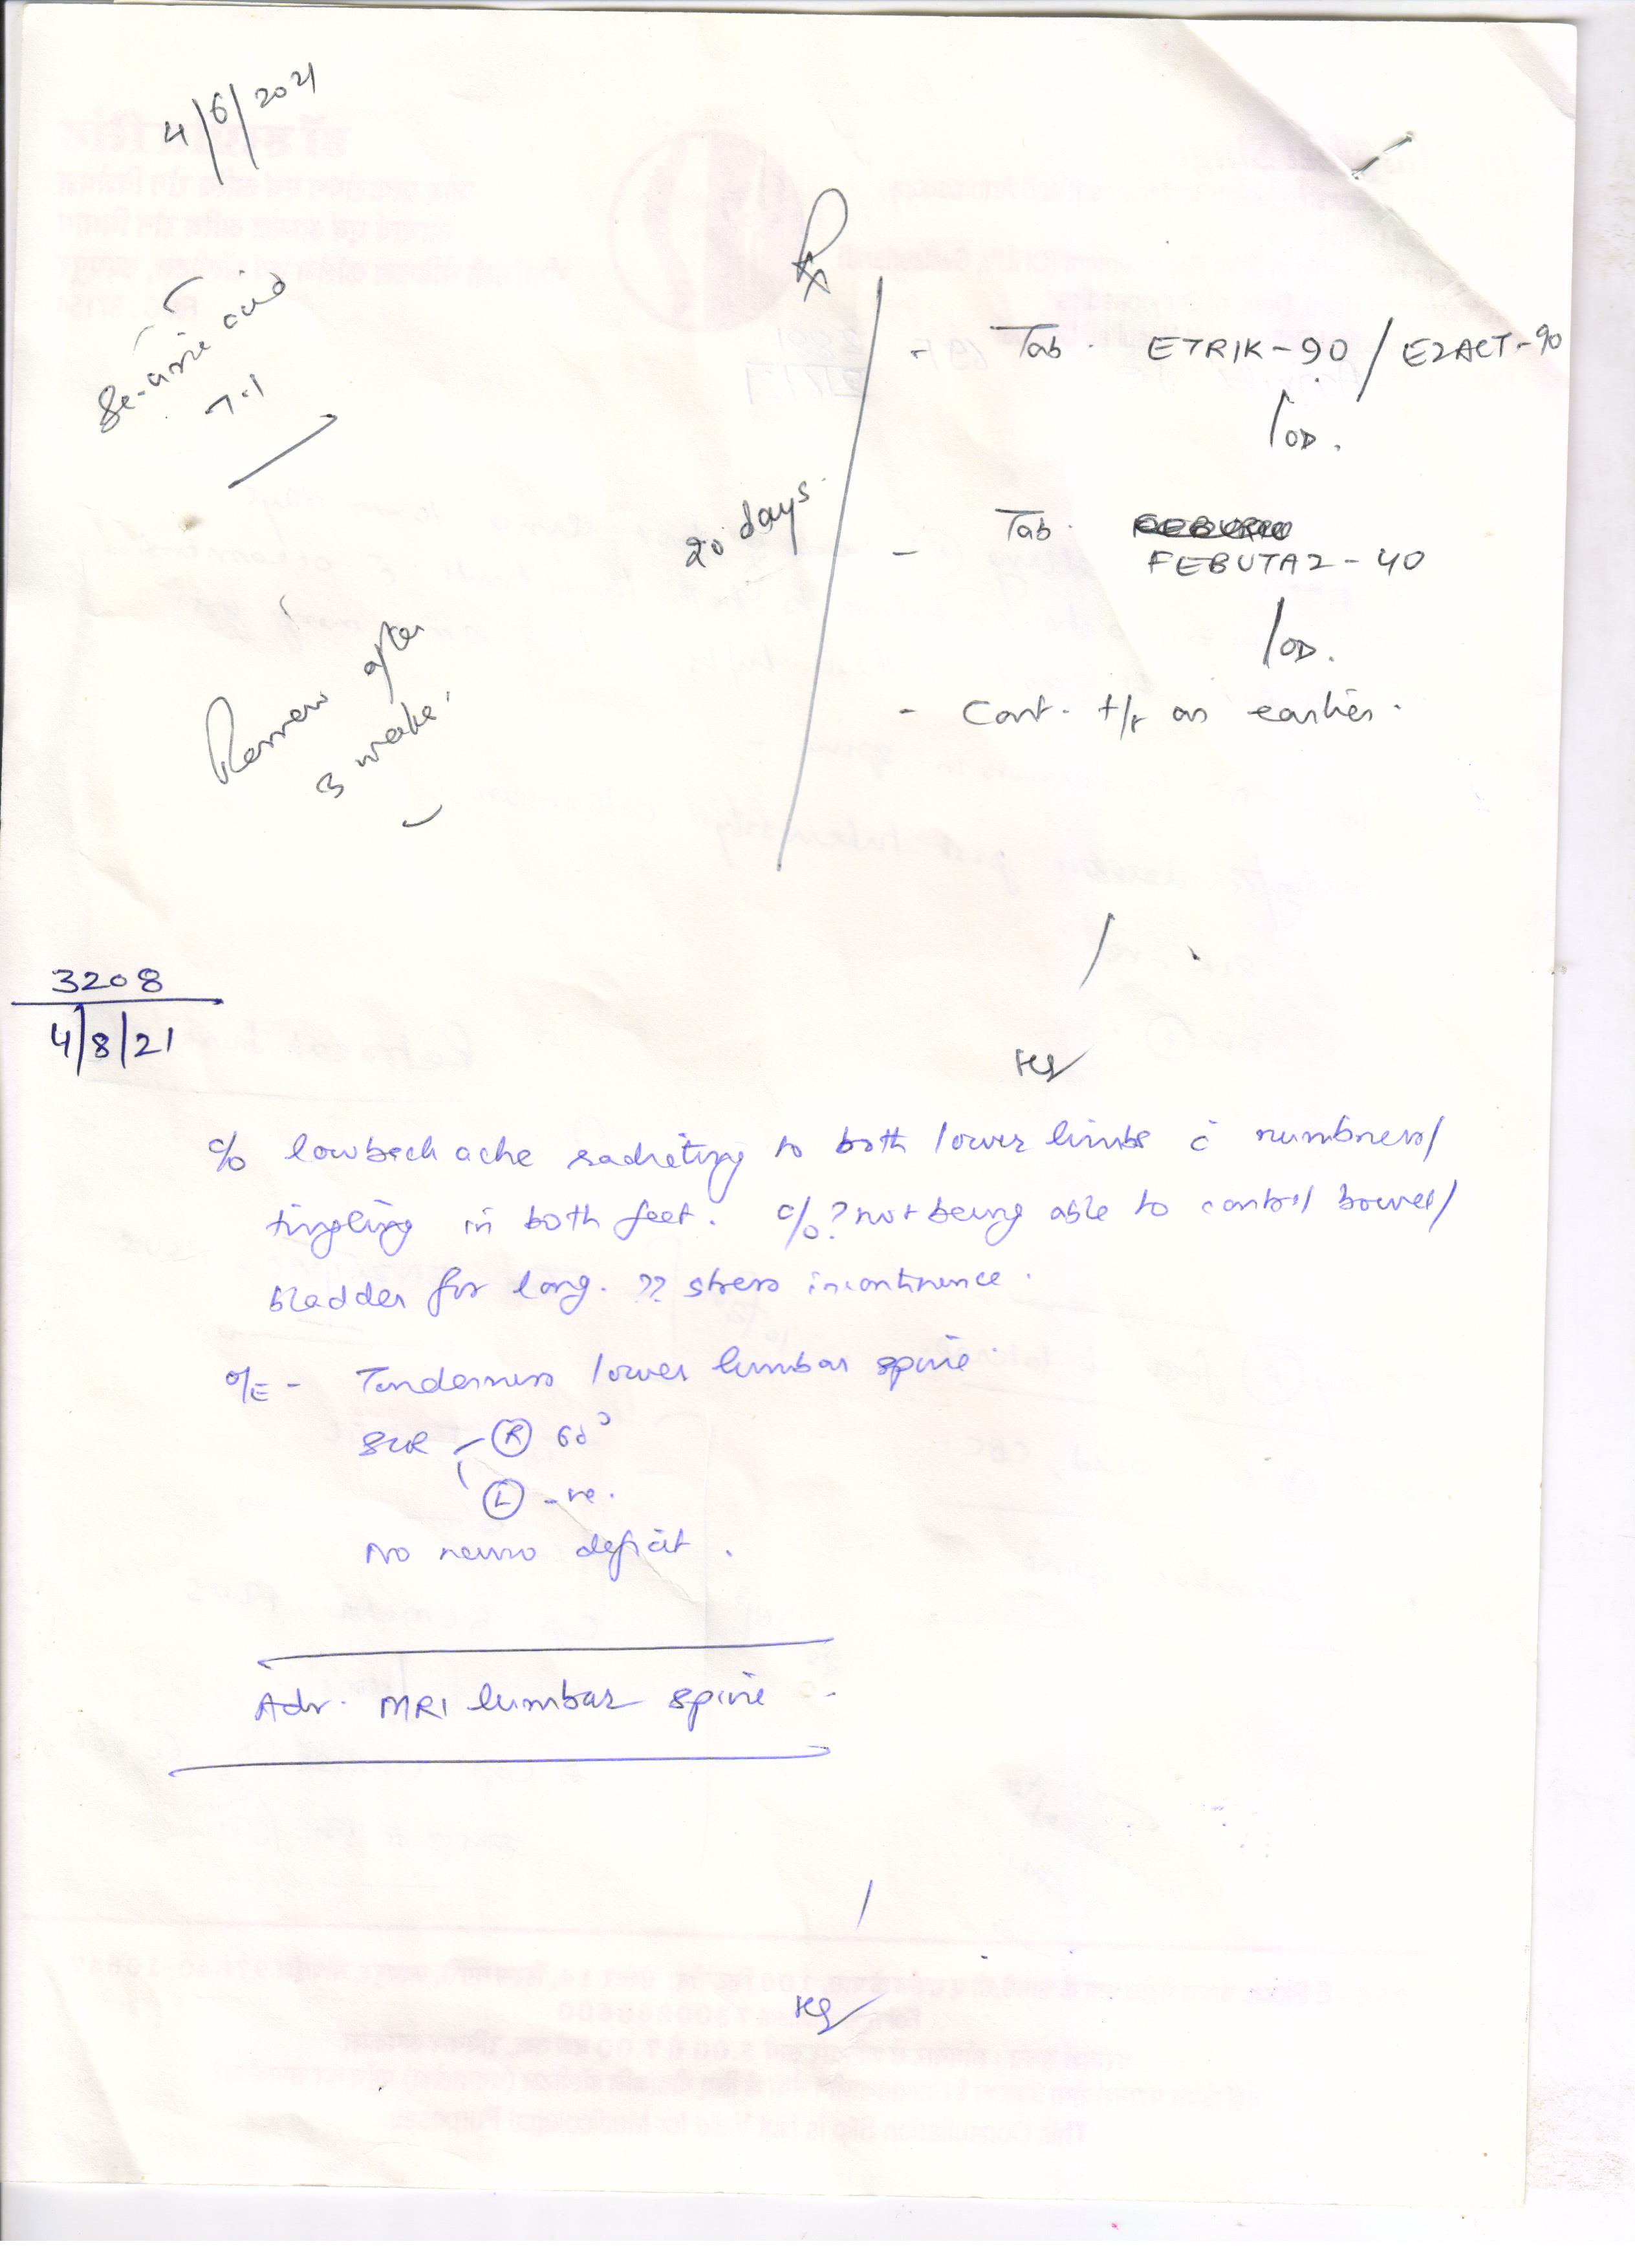 4/6/2021
Rx
Se. uric acid
7.1
- Tab. ETRIK-90 / EZACT-90
1 OD.
20 days.
- Tab.
FEBUTAZ-40
1 OD.
- Cont. t/t as earlier.
Review after
3 weeks.
3208
4/8/21
c/o lowback ache radiating to both lower limbs c̄ numbness/
tingling in both feet. c/o ? not being able to control bowel/
bladder for long. ?? stress incontinence.
O/E - Tenderness lower lumbar spine.
SLR (R) 60°
(L) -ve.
No neuro deficit.
Adv. MRI lumbar spine